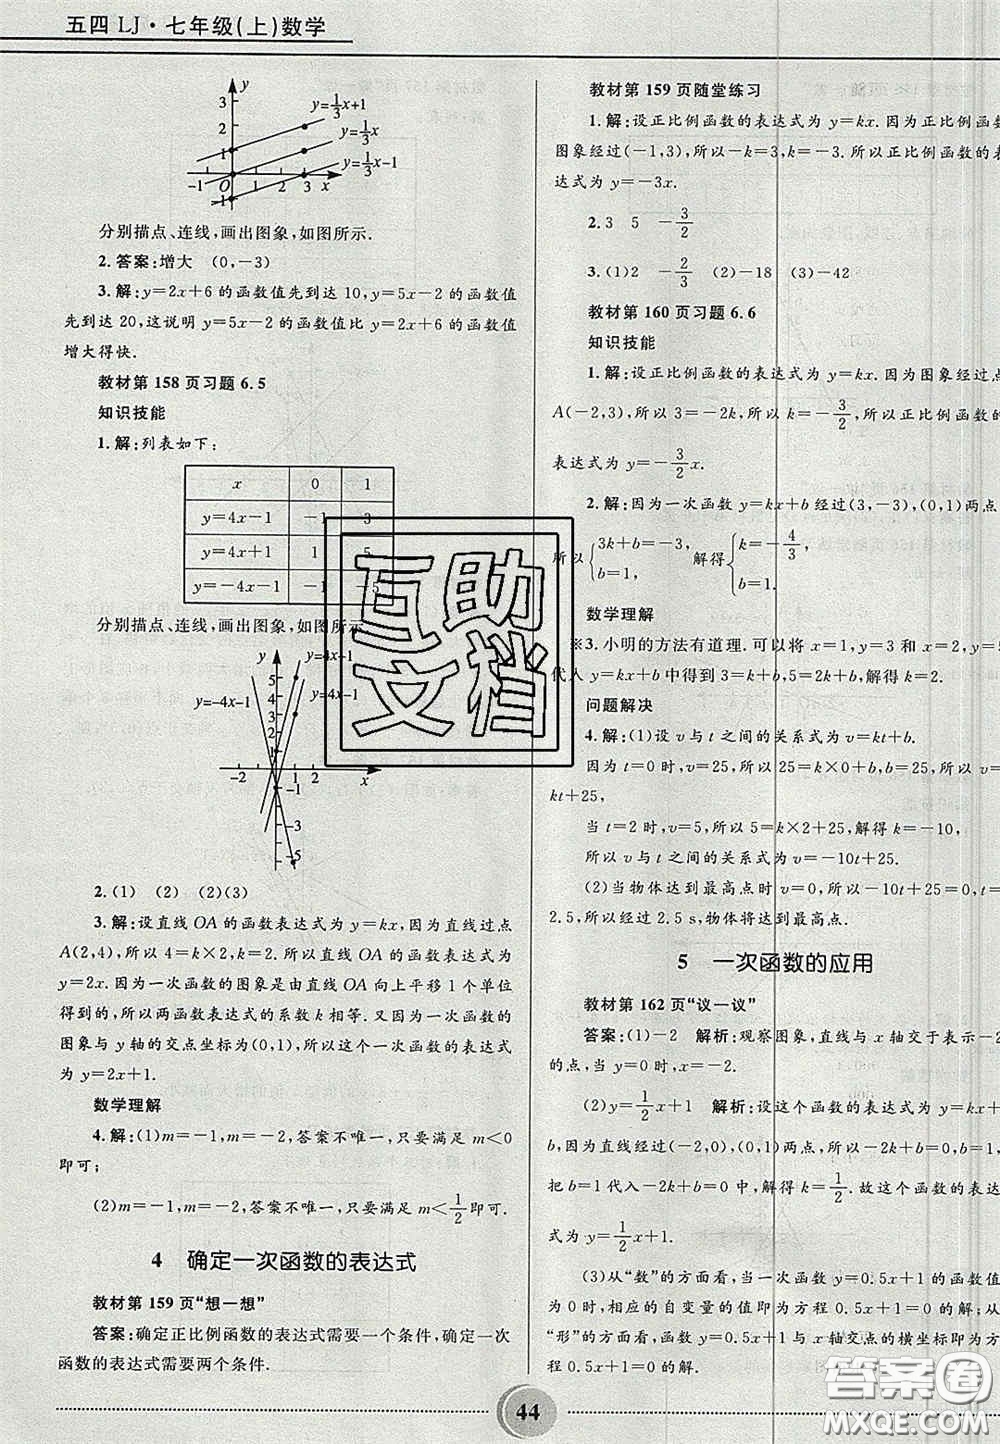 五四 LJ·七年级(上)数学
y
3
2
1
-1 O 1 2 3 x
-1
y=1/3x+1
y=1/3x
y=1/3x-1
分别描点、连线，画出图象，如图所示.
2.答案:增大 (0,-3)
3.解:y=2x+6 的函数值先到达 10,y=5x-2 的函数值
先到达 20,这说明 y=5x-2 的函数值比 y=2x+6 的函数值
增大得快.
教材第 158 页习题 6.5
知识技能
1.解:列表如下:
x 0 1
y=4x-1 -1 3
y=4x+1 1 5
y=-4x-1 -1 -5
分别描点、连线，画出图象，如图所示
y
y=4x-1
y=4x-1
y=-4x-1
5
4
3
2
-2 1 2 x
-1
-3
-5
2.(1) (2) (2)(3)
3.解:设直线 OA 的函数表达式为 y=kx,因为直线过点
A(2,4),所以 4=k×2,k=2,所以直线 OA 的函数表达式为
y=2x.因为一次函数的图象是由直线 OA 向上平移 1 个单位
得到的,所以两函数表达式的系数 k 相等.又因为一次函数的
图象与 y 轴的交点坐标为(0,1),所以这个一次函数的表达式
为 y=2x+1.
数学理解
4.解:(1)m=-1,m=-2,答案不唯一,只要满足 m<0
即可;
(2)m=-1,m=-2,答案不唯一,只要满足 m<1/2即可.
4 确定一次函数的表达式
教材第 159 页“想一想”
答案:确定正比例函数的表达式需要一个条件,确定一次
函数的表达式需要两个条件.
教材第 159 页随堂练习
1.解:设正比例函数的表达式为 y=kx.因为正比例函数的
图象经过(-1,3),所以-k=3,k=-3.所以正比例函数的表
达式为 y=-3x.
2.3 5 -3/2
3.(1)2 -2/3 (2)-18 (3)-42
教材第 160 页习题 6.6
知识技能
1.解:设正比例函数的表达式为 y=kx.因为图象经过点
A(-2,3),所以 3=-2k,所以 k=-3/2,所以正比例函数的
表达式为 y=-3/2x.
2.解:因为一次函数 y=kx+b 经过(3,-3),(0,1)两点,
所以{3k+b=-3, b=1, 解得{k=-4/3, b=1.
数学理解
※3.小明的方法有道理.可以将 x=1,y=3 和 x=2,y=5
代入 y=kx+b 中得到 3=k+b,5=2k+b,解得 k=2.
问题解决
4.解:(1)设 v 与 t 之间的关系式为 v=kt+b.
因为 t=0 时,v=25,所以 25=k×0+b,b=25,所以 v=
kt+25,
当 t=2 时,v=5,所以 5=k×2+25,解得 k=-10,
所以 v 与 t 之间的关系式为 v=-10t+25.
(2)当物体达到最高点时 v=0,所以-10t+25=0,t=
2.5,所以经过 2.5 s,物体将达到最高点.
5 一次函数的应用
教材第 162 页“议一议”
答案:(1)-2 解析:观察图象,直线与 x 轴交于表示-2
的点,当 y=0 时,x=-2.
(2)y=1/2x+1 解析:设这个函数的表达式为 y=kx+
b,因为直线经过(-2,0),(0,1)两点,所以 1=k×0+b,b=1,
把 b=1 代入-2k+b=0 中,解得 k=1/2.故这个函数的表达
式为 y=1/2x+1.
(3)从“数”的方面看,当一次函数 y=0.5x+1 的函数值
为 0 时,相应的自变量的值即为方程 0.5x+1=0 的解;从
“形”的方面看,函数 y=0.5x+1 与 x 轴交点的横坐标即为方
程 0.5x+1=0 的解.
互助
文档
答案圈
MXQE.COM
44